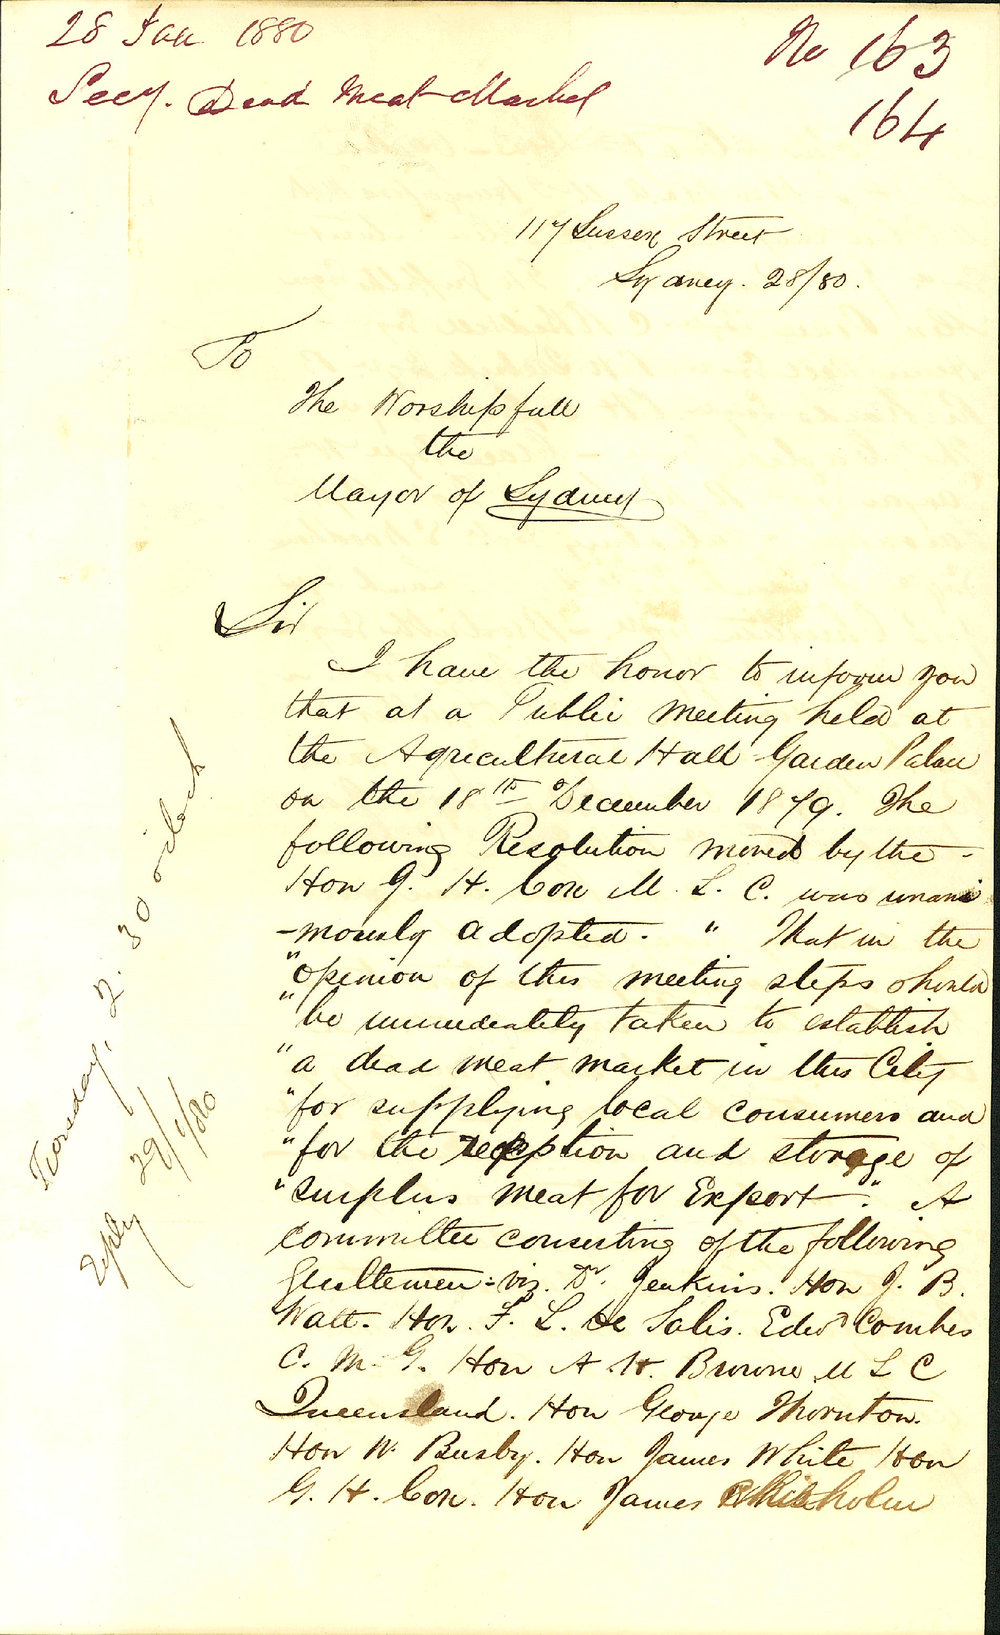 28 Jan 1880
No 163
Secy. Dead Meat Market
164
117 Sussex Street
Sydney. 28/80.
To
The Worshipfull
the
Mayor of Sydney
Sir
I have the honor to inform you
that at a Public Meeting held at
the Agricultural Hall Garden Palace
on the 18th December 1879. The
following Resolution moved by the -
Hon G. H. Cox M. L. C. was unani
-mously adopted. " That in the
"opinion of this meeting steps should
"be immediately taken to establish
"a dead meat market in this City
"for supplying local consumers and
"for the reception and storage of
"surplus meat for Export". A
committee consisting of the following
Gentlemen - viz. Dr. Jenkins. Hon J. B.
Watt. Hon. F. L. De Salis. Edwd Combes
C. M. G. Hon A. H. Browne M L C
Queensland. Hon George Thornton.
Hon W. Busby. Hon James White Hon
G. H. Cox. Hon James Chisholm
Tuesday, 2.30 oclock
Reply 29/1/80